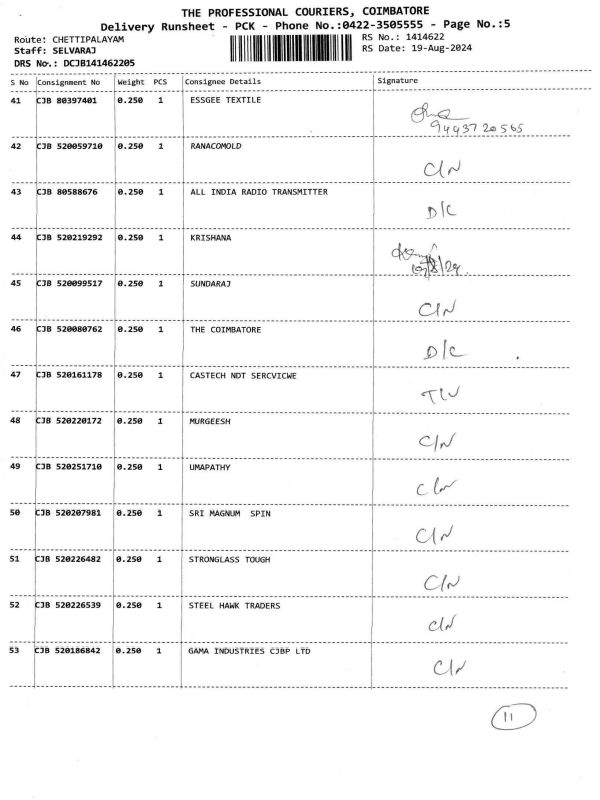 THE PROFESSIONAL COURIERS, COIMBATORE
Delivery Runsheet - PCK - Phone No.:0422-3505555 - Page No.:5
Route: CHETTIPALAYAM RS No.: 1414622
Staff: SELVARAJ RS Date: 19-Aug-2024
DRS No.: DCJB141462205
S No Consignment No Weight PCS Consignee Details Signature
41 CJB 80397401 0.250 1 ESSGEE TEXTILE
9443720565
42 CJB 520059710 0.250 1 RANACOMOLD
C/N
43 CJB 80588676 0.250 1 ALL INDIA RADIO TRANSMITTER
D/C
44 CJB 520219292 0.250 1 KRISHANA
45 CJB 520099517 0.250 1 SUNDARAJ
C/N
46 CJB 520080762 0.250 1 THE COIMBATORE
D/C
47 CJB 520161178 0.250 1 CASTECH NDT SERCVICWE
48 CJB 520220172 0.250 1 MURGEESH
C/N
49 CJB 520251710 0.250 1 UMAPATHY
C/N
50 CJB 520207981 0.250 1 SRI MAGNUM SPIN
C/N
51 CJB 520226482 0.250 1 STRONGLASS TOUGH
C/N
52 CJB 520226539 0.250 1 STEEL HAWK TRADERS
C/N
53 CJB 520186842 0.250 1 GAMA INDUSTRIES CJBP LTD
C/N
11